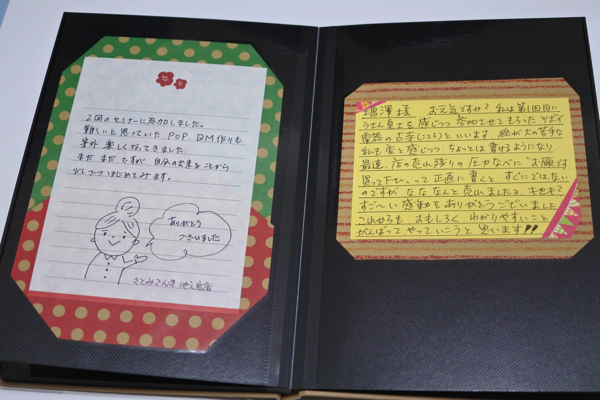 2回のセミナーに参加しました。
難しいと思っていた POP、DM作りも
意外 楽しくなってきました。
まだ まだ ですが 自分の出来ることから
少しづつ はじめてみます。
ありがとう
ございました
さとみでんき 池之宮店
増澤様 お元気ですか? 私は第1回目に
を感じつつ 参加させてもらった ツボイ
電器の といいます 絵が大の苦手な
私も 楽と感じつつ、ちょっとは書けるようになり
最近、店の売れ残りの 圧力なべに"お願いです
買って下さい"って 正直に書くと すぐにではない
のですが なな なんと 売れましたヨ
すご〜い 感動を ありがとうございました
これからも おもしろく わかりやすいこと
がんばって やっていこうと 思います!!